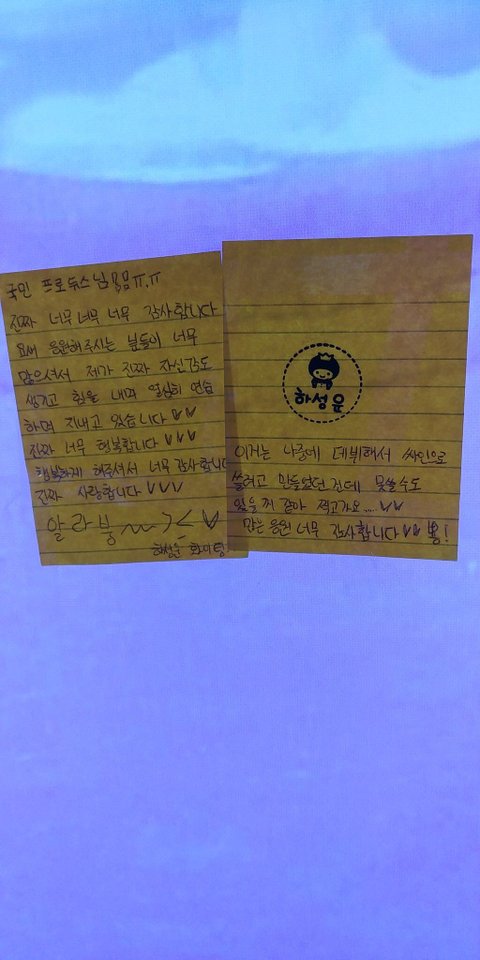 국민 프로듀스님 ㅠ.ㅠ
진짜 너무 너무 너무 감사합니다
요새 응원해주시는 분들이 너무
많으셔서 제가 진짜 자신감도
생기고 힘을 내며 열심히 연습
하며 지내고 있습니다♡♡
진짜 너무 행복합니다 ♡♡♡
행복하게 해주셔서 너무 감사합니다
진짜 사랑합니다 ♡♡♡
알라붕~~><♡
하성운 화이팅!
하성운
이거는 나중에 데뷔해서 싸인으로
쓸려고 만들었던 건데 못쓸수도
있을거 같아 적고가요....♡♡
많은 응원 너무 감사합니다♡♡ 뽕!